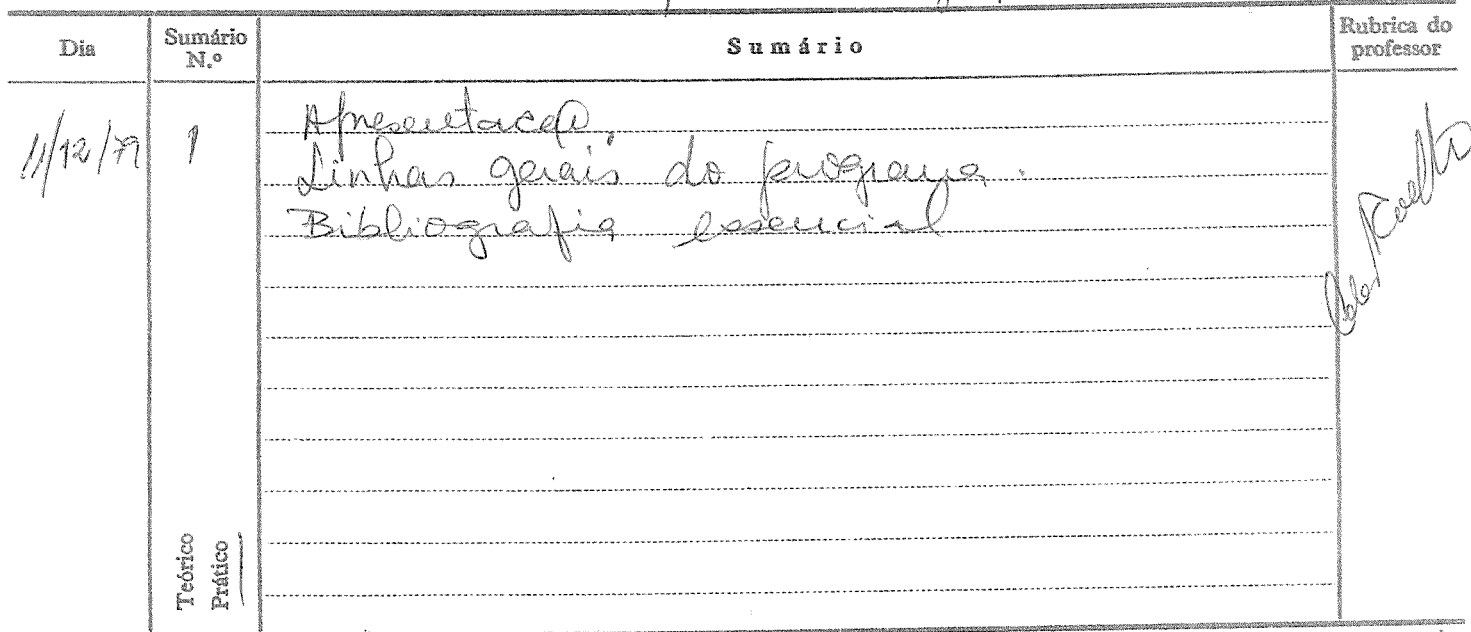 Dia
Sumário N.º
Sumário
Rubrica do professor
11/12/79
1
Apresentação.
Linhas gerais do programa.
Bibliografia essencial
Teórico
Prático